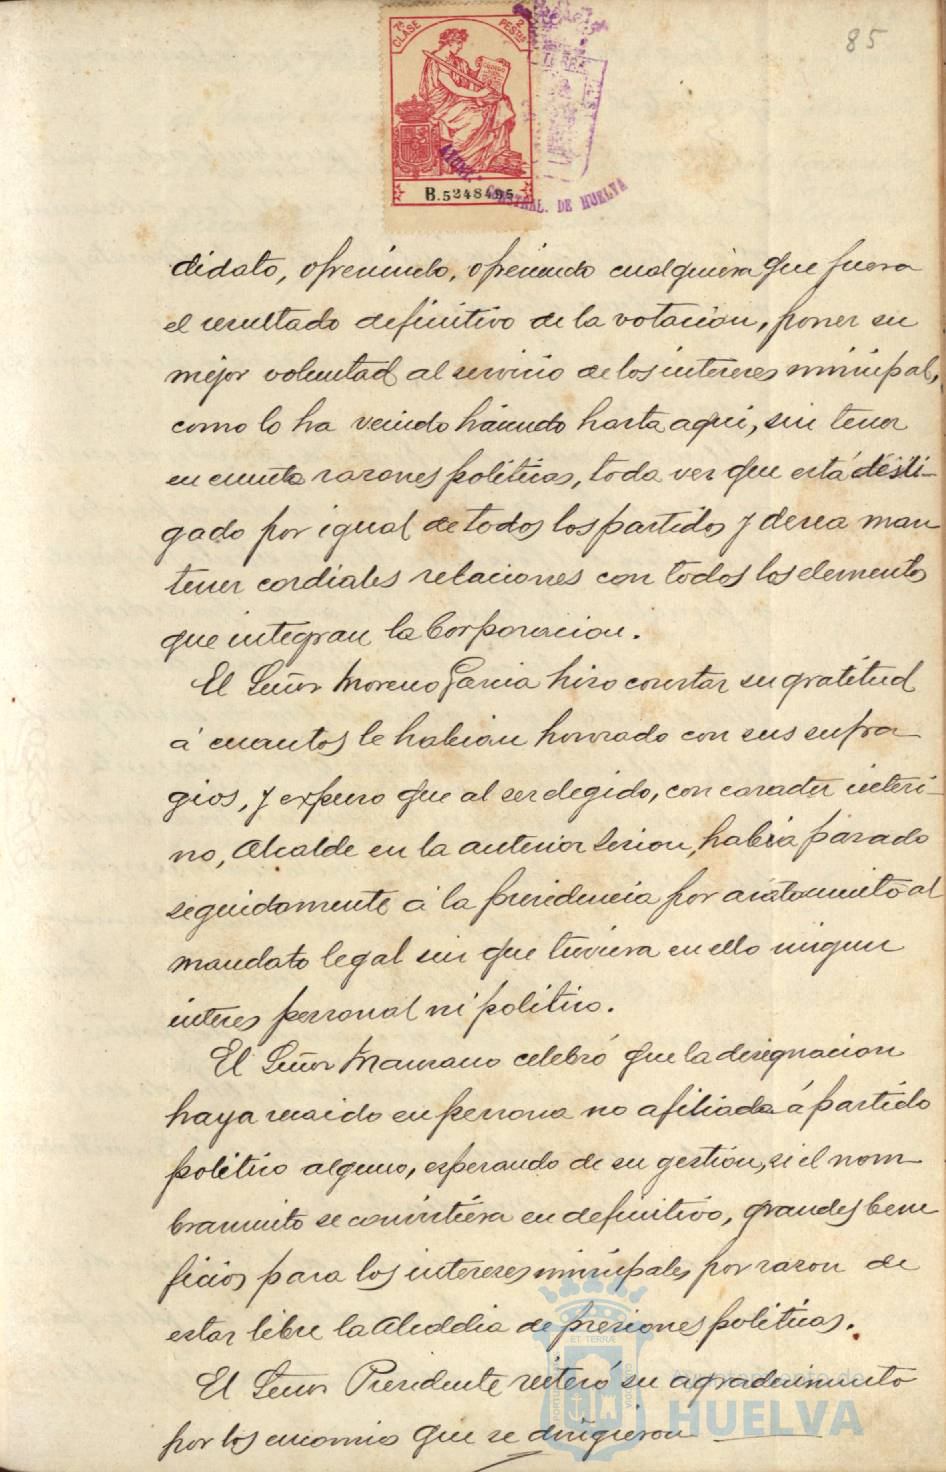 85
7ª CLASE
2 PESTAS
B.5248495
CONSTRAL. DE HUELVA
didato, ofreciendo, ofreciendo cualquiera que fuera
el resultado definitivo de la votacion, poner su
mejor voluntad al servicio de los intereses municipal,
como lo ha venido haciendo hasta aqui, sin tener
en cuenta razones politicas, toda vez que está desli-
gado por igual de todos los partidos y desea man
tener cordiales relaciones con todos los elementos
que integran la Corporacion.
El Señor Moreno Garcia hizo constar su gratitud
á cuantos le habian honrado con sus sufra
gios, y expuso que al ser elegido, con caracter interi-
no, Alcalde en la anterior sesion, habia pasado
seguidamente á la presidencia por acatamiento al
mandato legal sin que tuviera en ello ningun
interes personal ni politico.
El Señor Manzano celebró que la designacion
haya recaido en persona no afiliada á partido
politico alguno, esperando de su gestion, si el nom
bramiento se convirtiera en definitivo, grandes bene
ficios para los intereses municipales, por razon de
estar libre la Alcaldia de presiones politicas.
El Señor Presidente reiteró su agradecimiento
por los encomios que se dirigieron
ET TERRÆ
Ayuntamiento de
HUELVA